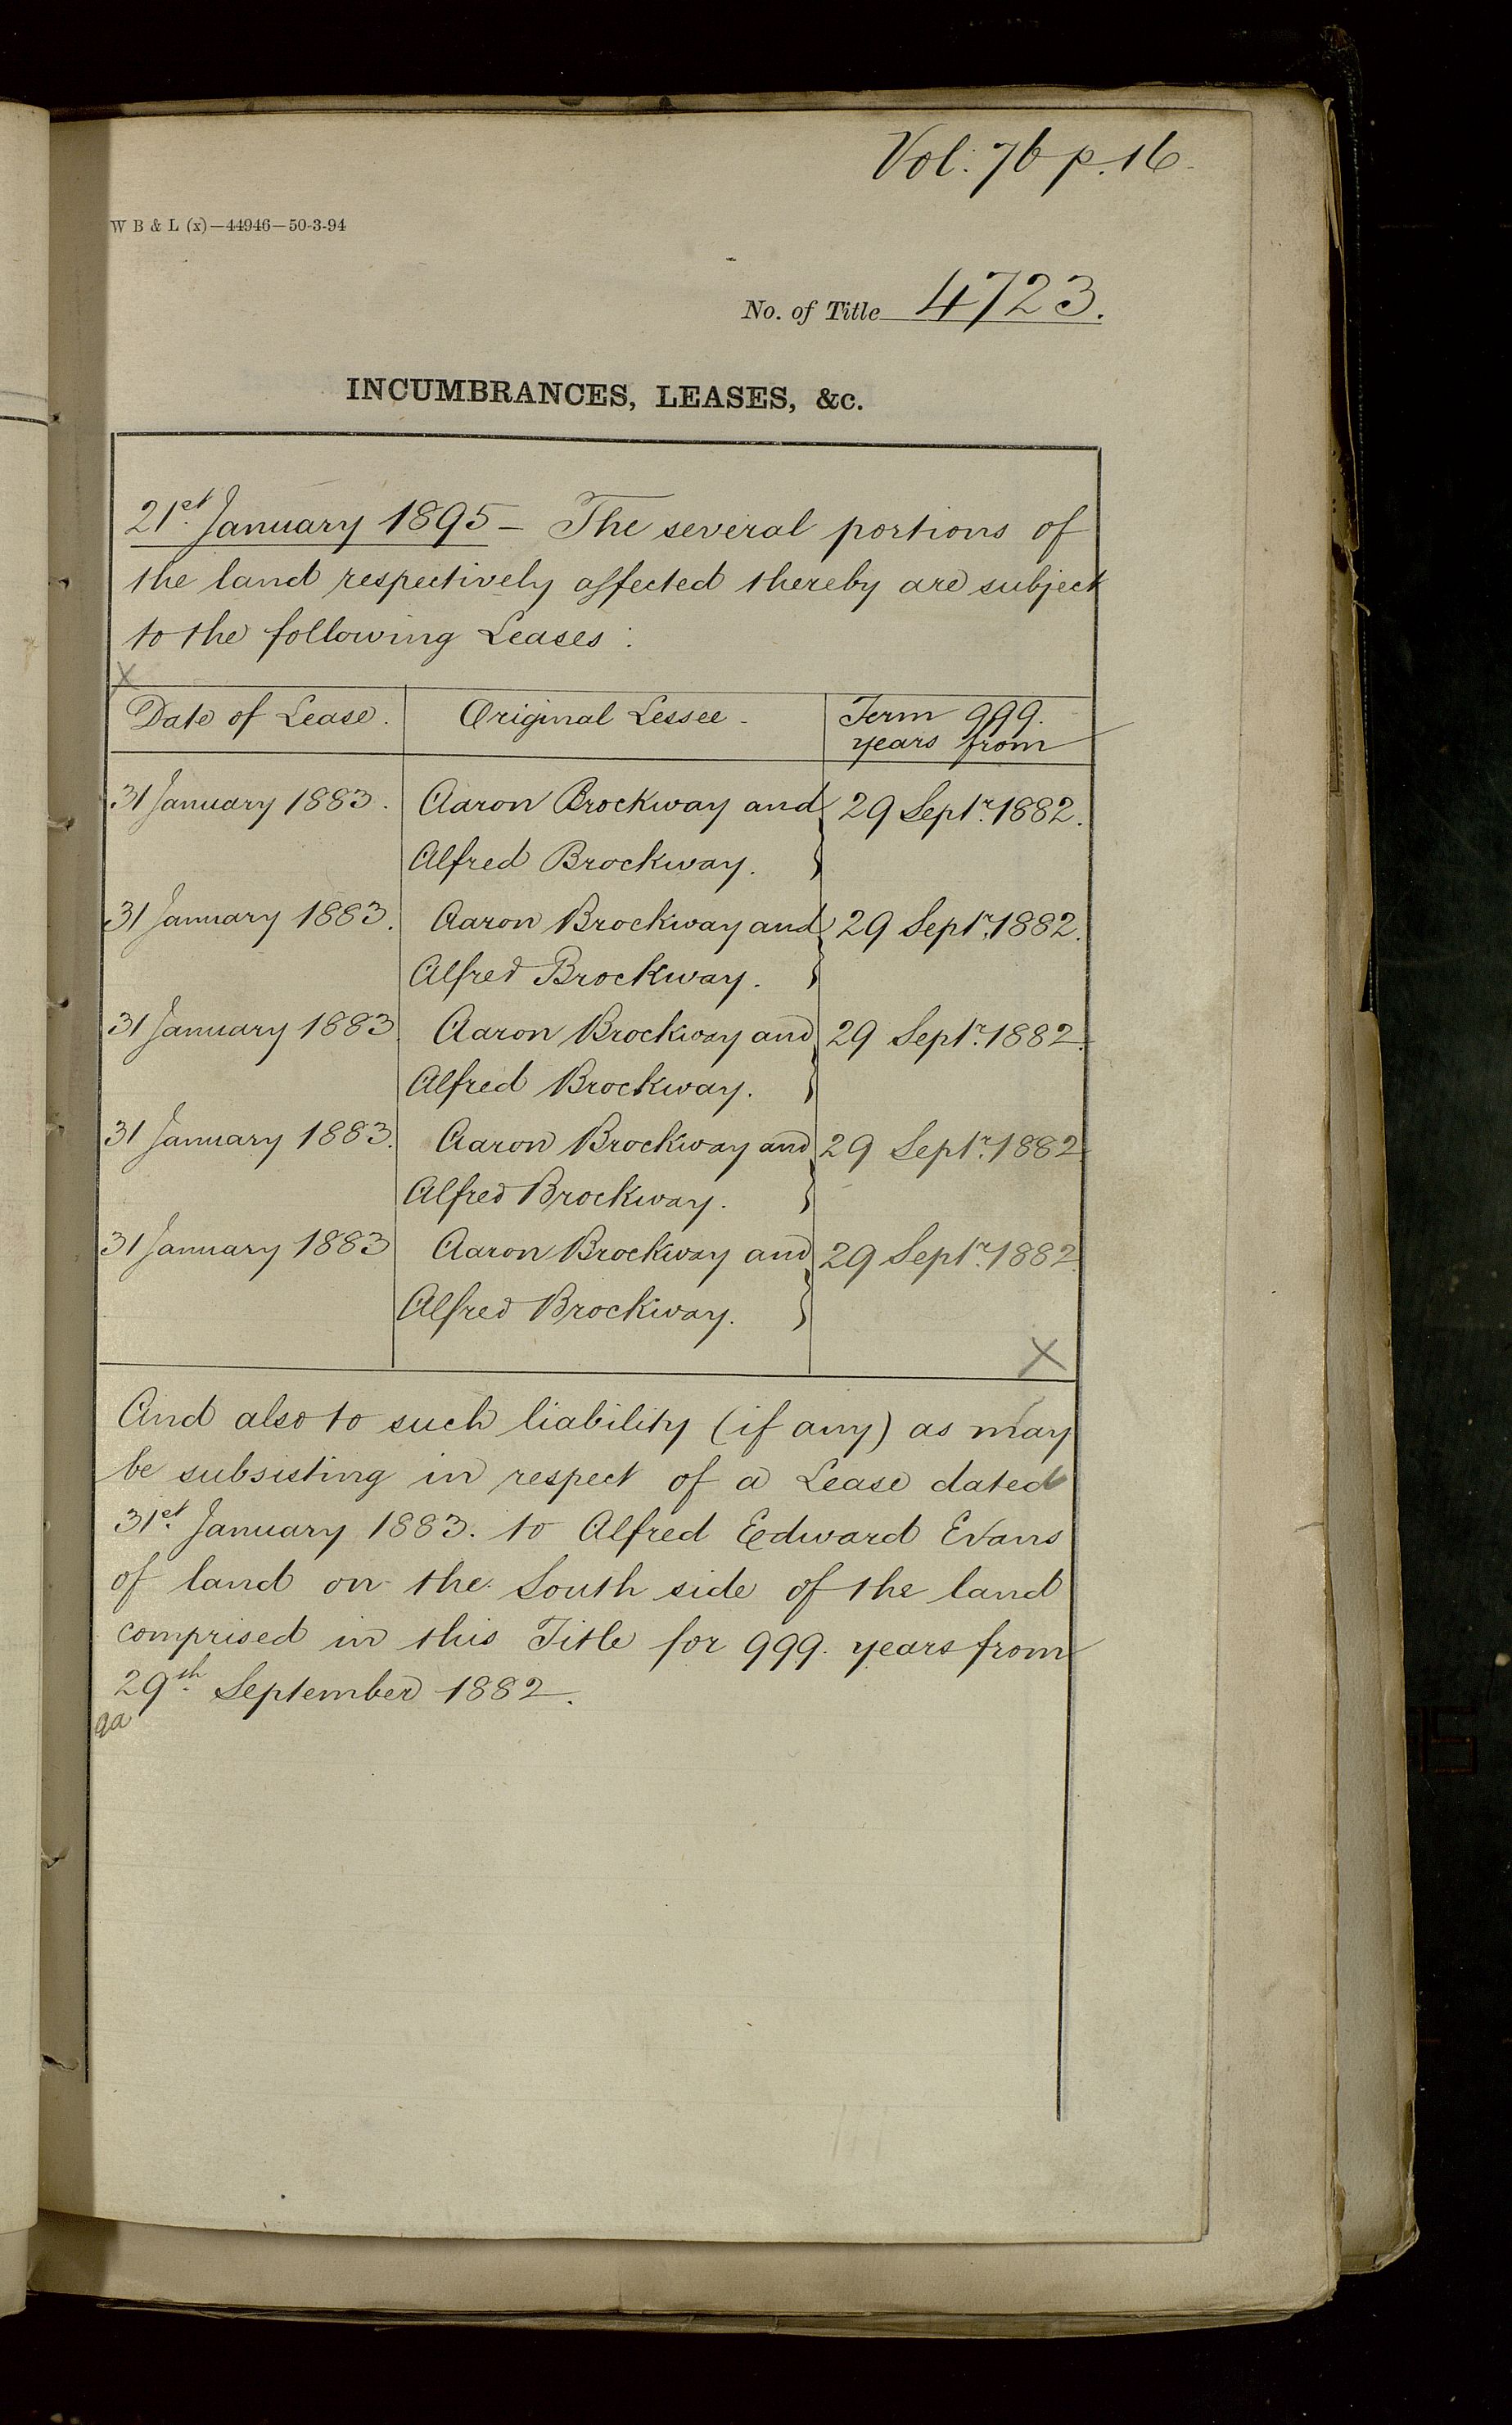 Vol. 76 p. 16
W B & L (x)—44946—50-3-94
No. of Title 4723.
INCUMBRANCES, LEASES, &c.
21st January 1895 – The several portions of
the land respectively affected thereby are subject
to the following Leases :
X
Date of Lease. Original Lessee - Term 999. years from
31 January 1883. Aaron Brockway and 29 Septr. 1882.
Alfred Brockway. }
31 January 1883. Aaron Brockway and 29 Septr. 1882.
Alfred Brockway. }
31 January 1883. Aaron Brockway and 29 Septr. 1882.
Alfred Brockway. }
31 January 1883. Aaron Brockway and 29 Septr. 1882
Alfred Brockway. }
31 January 1883 Aaron Brockway and 29 Septr. 1882.
Alfred Brockway. }
X
And also to such liability (if any) as may
be subsisting in respect of a Lease dated
31st. January 1883. to Alfred Edward Evans
of land on the South side of the land
comprised in this Title for 999. years from
29th. September 1882.